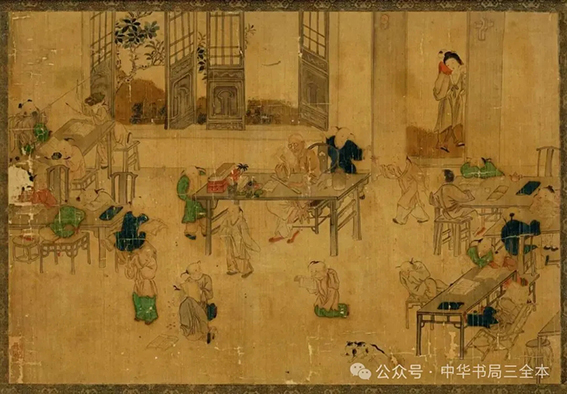 公众号 · 中华书局三全本